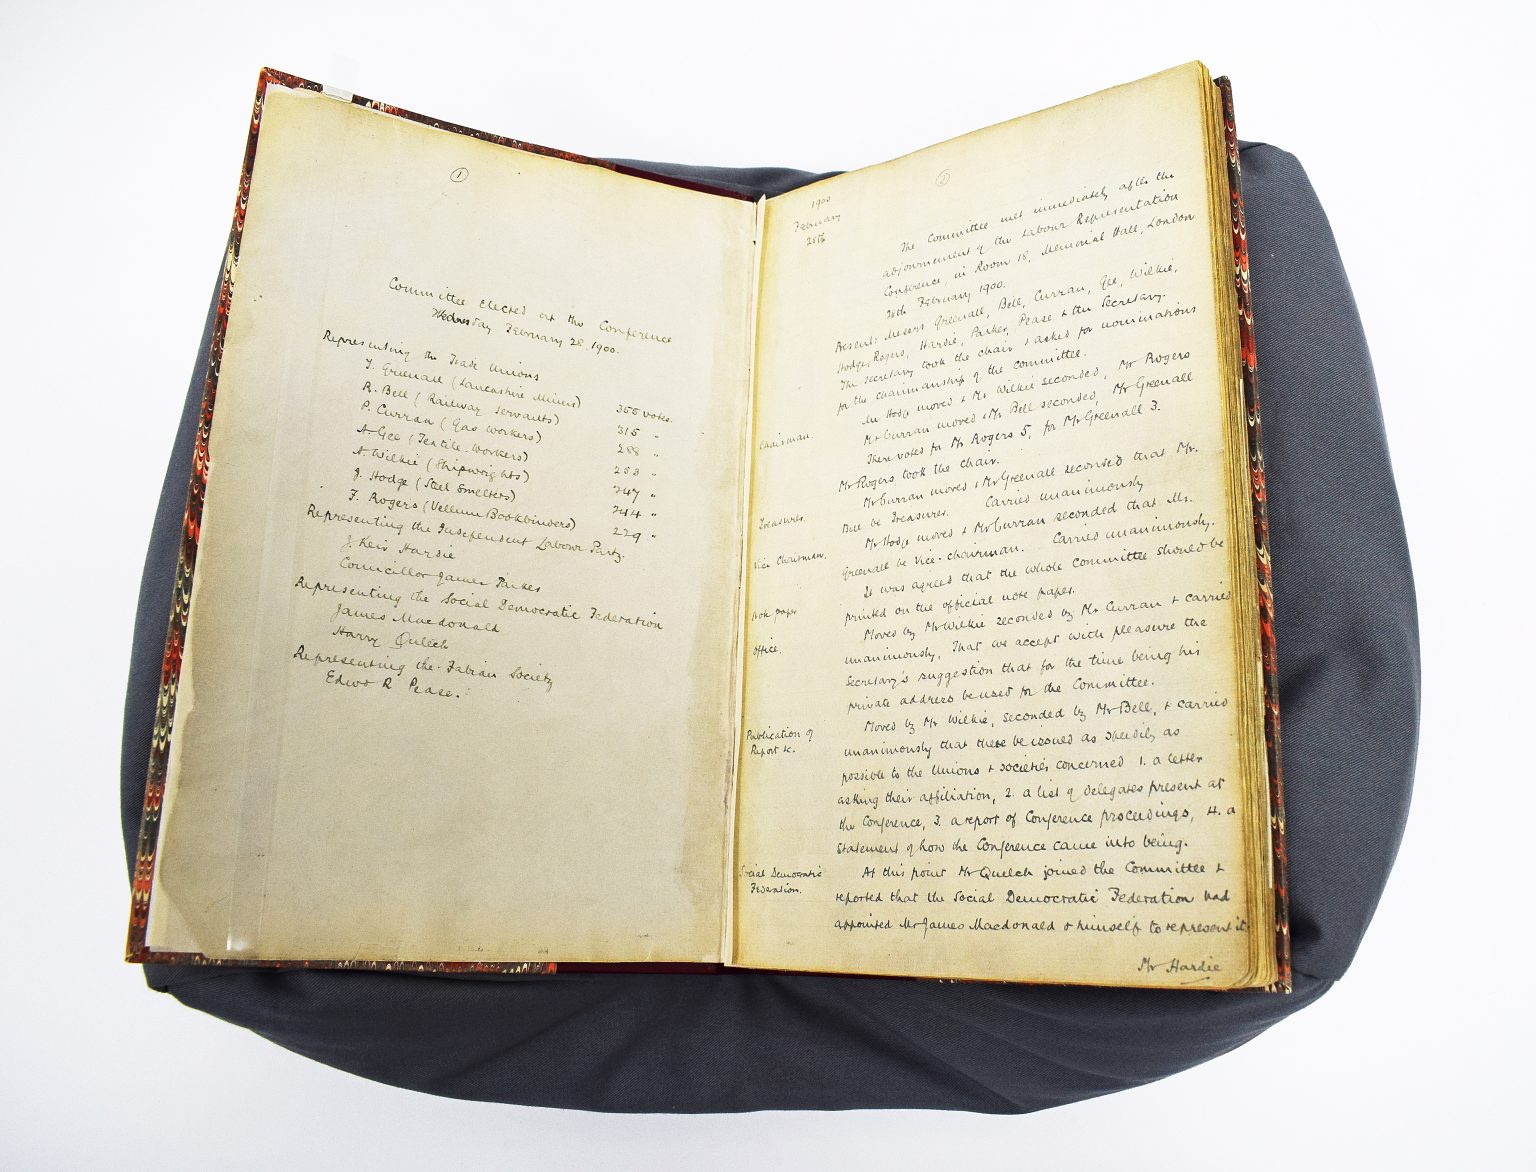 1
Committee elected at the Conference
Wednesday February 28. 1900.
Representing the Trade Unions
T. Greenall (Lancashire Miners) 355 votes.
R. Bell (Railway Servants) 315 "
P. Curran (Gas Workers) 288 "
A. Gee (Textile workers) 253 "
A. Wilkie (Shipwrights) 247 "
J. Hodge (Steel Smelters) 244 "
F. Rogers (Vellum Bookbinders) 229 "
Representing the Independent Labour Party.
J. Keir Hardie
Councillor James Parker
Representing the Social Democratic Federation
James Macdonald
Harry Quelch
Representing the Fabian Society
Edwd R Pease.
2
1900
February
28th
The Committee met immediately after the
adjournment of the Labour Representation
Conference, in Room 18. Memorial Hall, London
28th February 1900.
Present: Messrs Greenall, Bell, Curran, Gee, Wilkie,
Hodge, Rogers, Hardie, Parker, Pease & the Secretary.
The Secretary took the chair & asked for nominations
for the chairmanship of the committee.
Chairman.
Mr Hodge moved & Mr Wilkie seconded, Mr Rogers
Mr Curran moved & Mr Bell seconded, Mr Greenall
There voted for Mr Rogers 5, for Mr Greenall 3.
Mr Rogers took the chair.
Treasurer.
Mr Curran moved & Mr Greenall seconded that Mr.
Bell be Treasurer. Carried unanimously
Vice Chairman.
Mr Hodge moved & Mr Curran seconded that Mr.
Greenall be Vice-chairman. Carried unanimously.
Note paper
It was agreed that the whole Committee should be
printed on the official note paper.
Office.
Moved by Mr Wilkie seconded by Mr Curran & carried
unanimously, That we accept with pleasure the
Secretary's suggestion that for the time being his
private address be used for the Committee.
Publication of
Report &c.
Moved by Mr Wilkie, seconded by Mr Bell, & carried
unanimously that there be issued as speedily as
possible to the Unions & societies concerned 1. a letter
asking their affiliation, 2. a list of delegates present at
the Conference, 3. a report of Conference proceedings, 4. a
statement of how the Conference came into being.
Social Democratic
Federation.
At this point Mr Quelch joined the Committee &
reported that the Social Democratic Federation had
appointed Mr James Macdonald & himself to represent it.
Mr Hardie